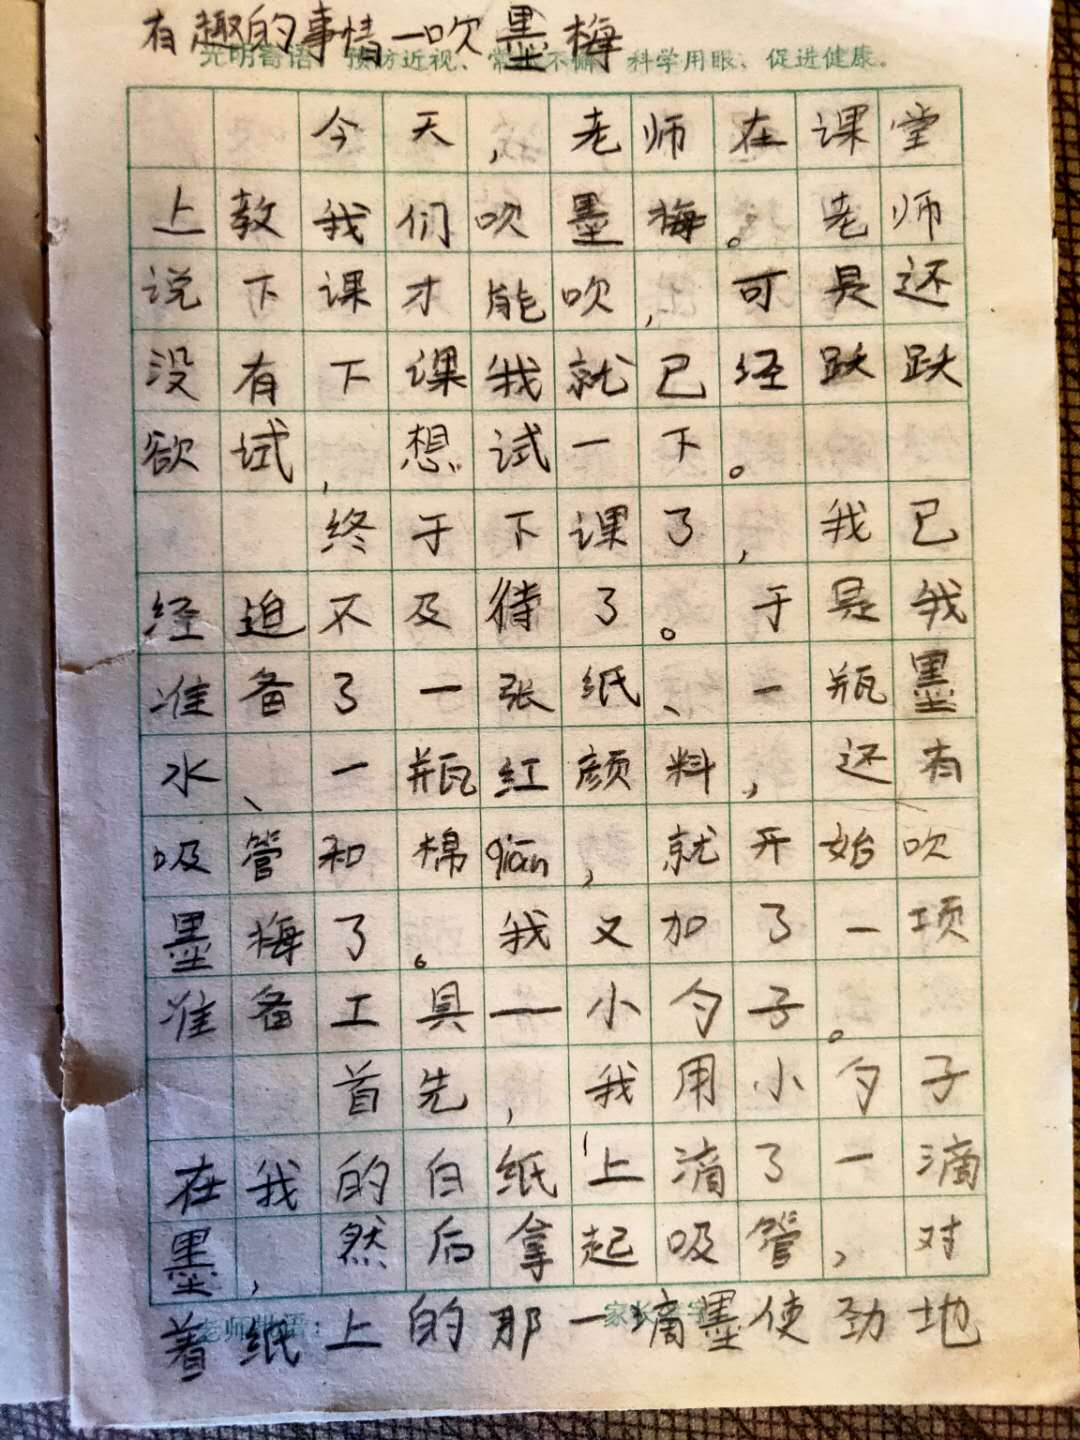 有趣的事情一吹墨梅
光明寄语：预防近视、常抓不懈，科学用眼、促进健康。
今天，老师在课堂
上教我们吹墨梅。老师
说下课才能吹，可是还
没有下课我就已经跃跃
欲试，想试一下。
终于下课了，我已
经迫不及待了。于是我
准备了一张纸、一瓶墨
水、一瓶红颜料，还有
吸管和棉qiān，就开始吹
墨梅了。我又加了一项
准备工具—小勺子。
首先，我用小勺子
在我的白纸上滴了一滴
墨，然后拿起吸管，对
着纸上的那一滴墨使劲地